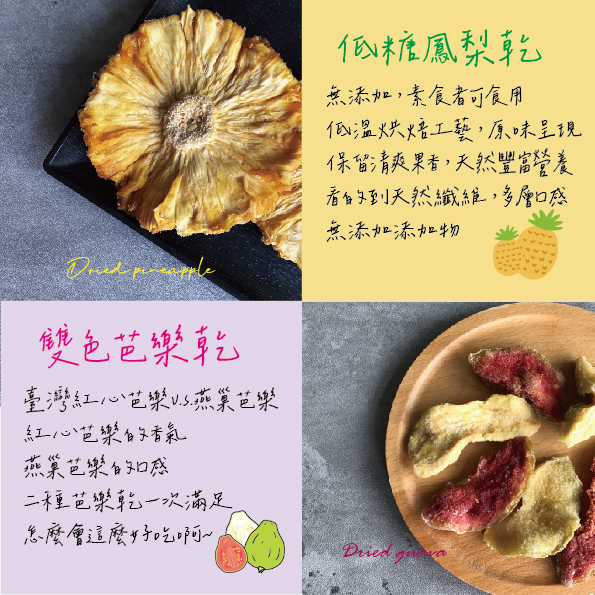 低糖鳳梨乾
無添加，素食者可食用
低溫烘焙工藝，原味呈現
保留清爽果香，天然豐富營養
看的到天然纖維，多層口感
無添加添加物
Dried pineapple
雙色芭樂乾
臺灣紅心芭樂v.s.燕巢芭樂
紅心芭樂的香氣
燕巢芭樂的口感
二種芭樂乾一次滿足
怎麼會這麼好吃啊~
Dried guava